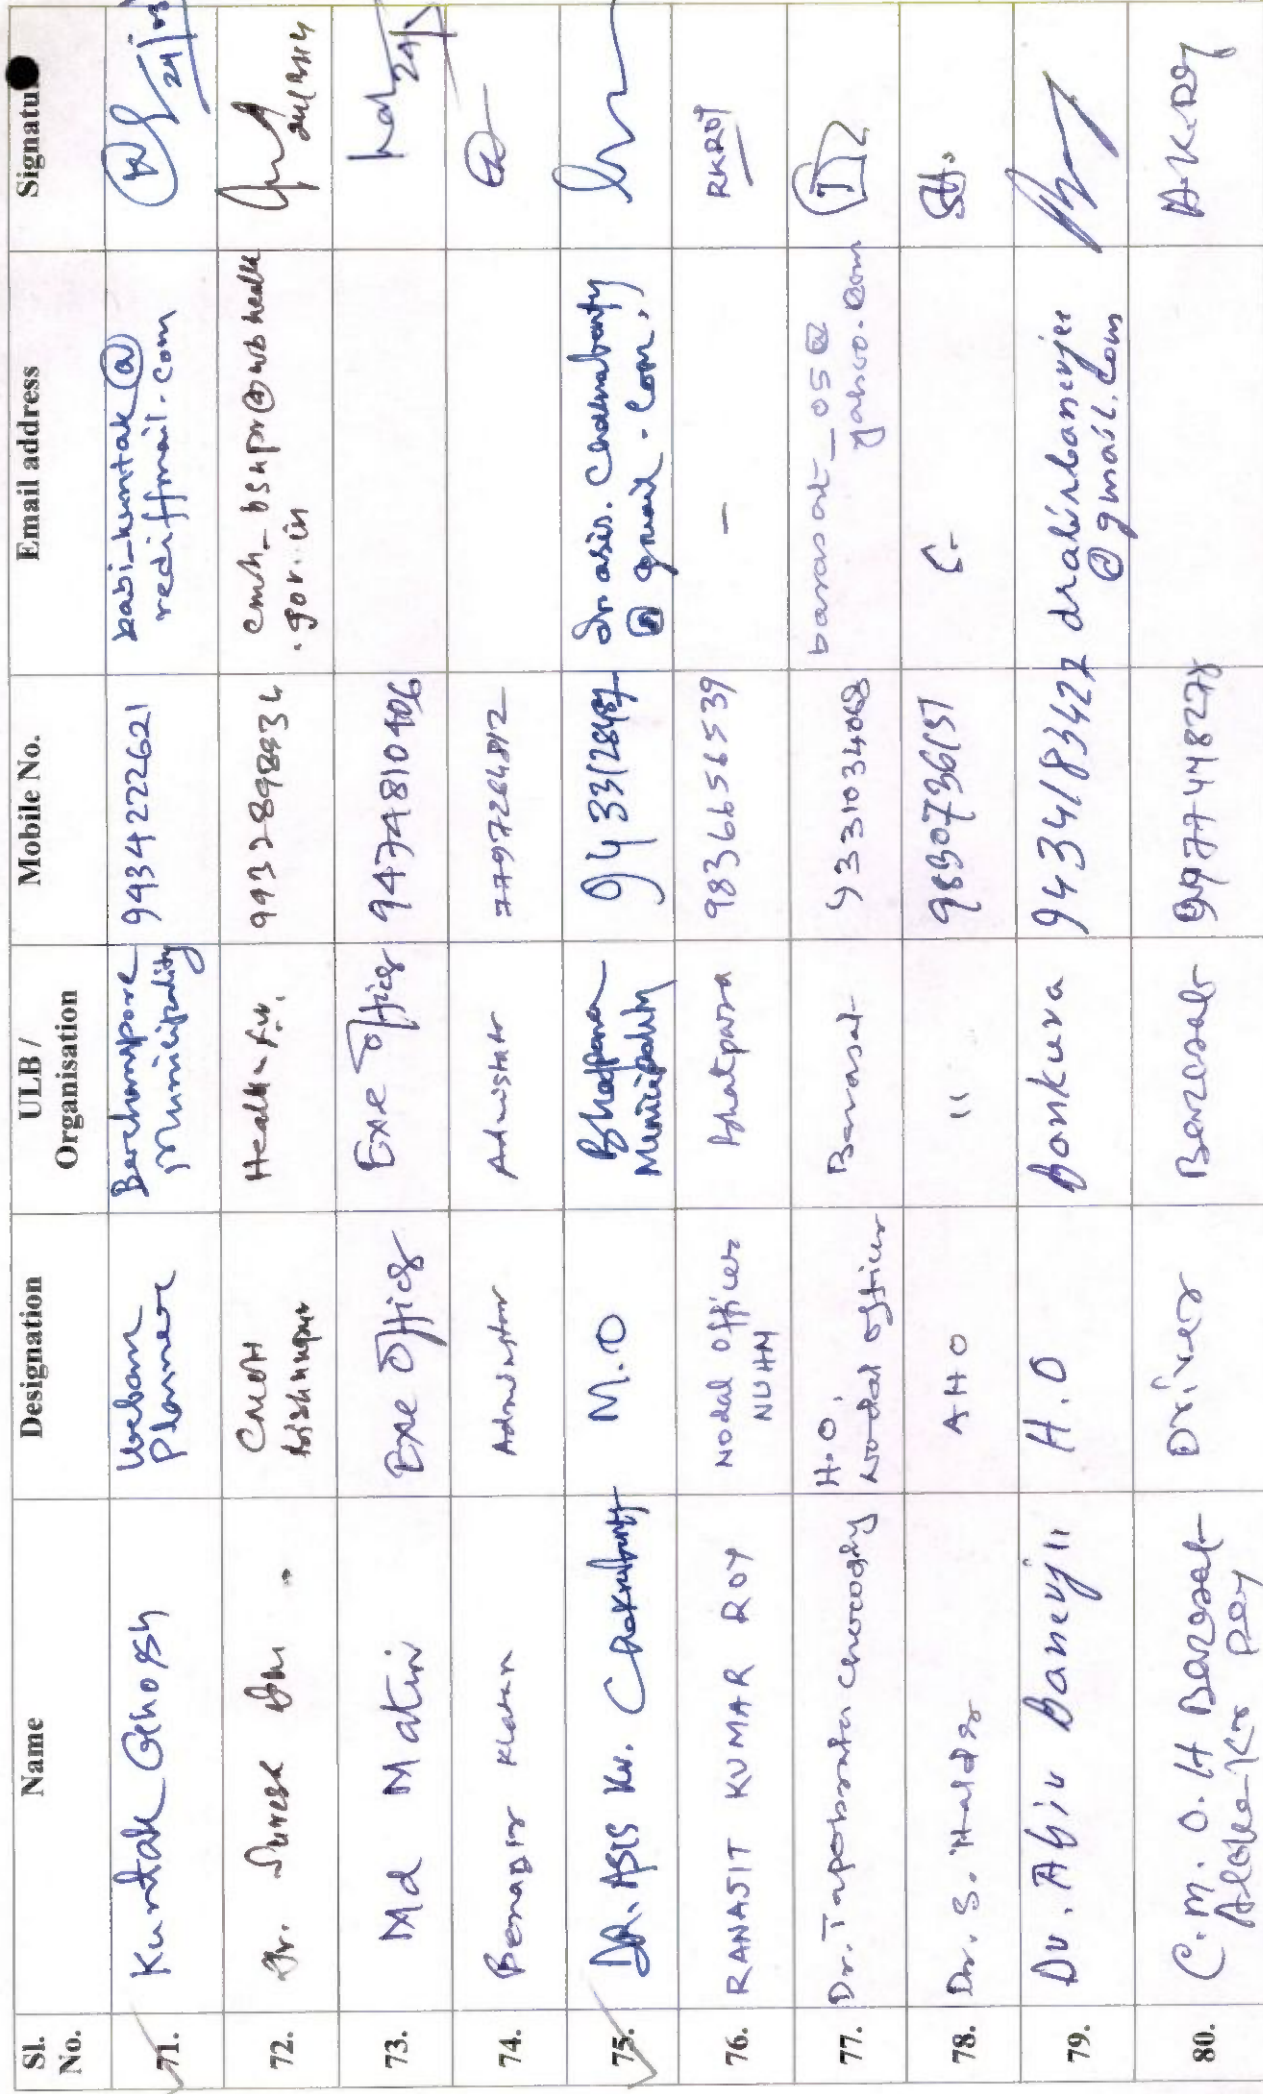 Sl. No. Name Designation ULB / Organisation Mobile No. Email address Signatu
71. Kuntak Ghosh Urban Planner Berhampore Municipality 9434222621 babi_kuntak@rediffmail.com 24/03
72. Dr. Suresh CMOH Bishnupur Health 993289 cmoh_bsnpr@wbhealth.gov.in
73. Md Matin Exe Officer Exe Officer 9474810406
74. Benazir 7797264812
75. DR. ASIS Kr. Chakraborty M.O Bhatpara Municipality 9433128487 dr.asis.chakraborty@gmail.com
76. RANAJIT KUMAR ROY Nodal Officer NUHM Bhatpara 9836656539 - RKROY
77. Dr. Tapobrata H.O. Nodal officer Barasat 9331034068 barasat_05@yahoo.com
78. Dr. S. Halder AHO " 9830736157
79. Dr. Abir Banerjee H.O Bankura 943418342 drabirbanerjee@gmail.com
80. C.M.O.H Barasat Aloke Kr Dey Driver Barasat A.K.Dey